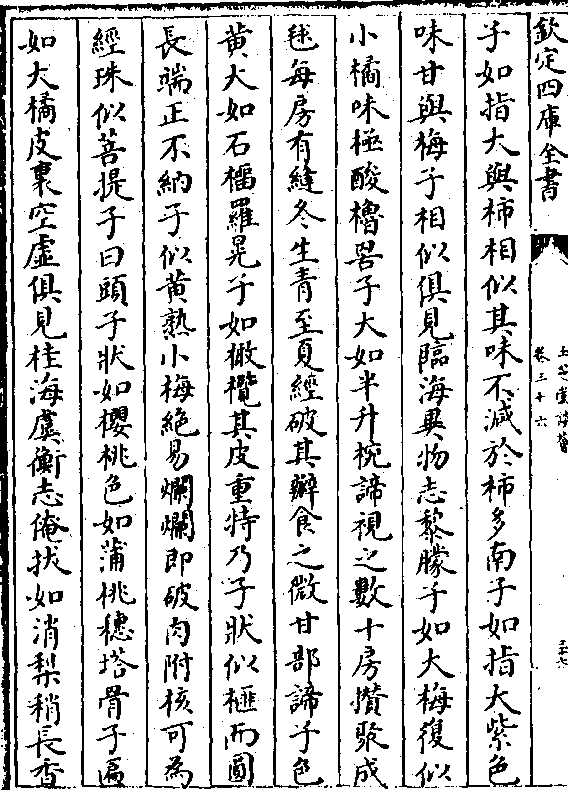 欽定四庫全書
卷三十六
子如指大與柿相似其味不減於柿多南子如指大紫色
味甘與梅子相似俱見臨海異物志黎朦子如大梅復似
小橘味極酸櫓罟子大如半升椀諦視之數十房攢聚成
毬每房有縫冬生青至夏經破其瓣食之微甘部諦子色
黃大如石橊羅晃子如橄欖其皮重特乃子狀似榧而圓
長端正不納子似黃熟小梅絶易爛爛即破肉附核可為
經珠似菩提子曰頭子狀如櫻桃色如蒲桃穗塔骨子匾
如大橘皮裏空虛俱見桂海虞衡志俺拔如消梨稍長香